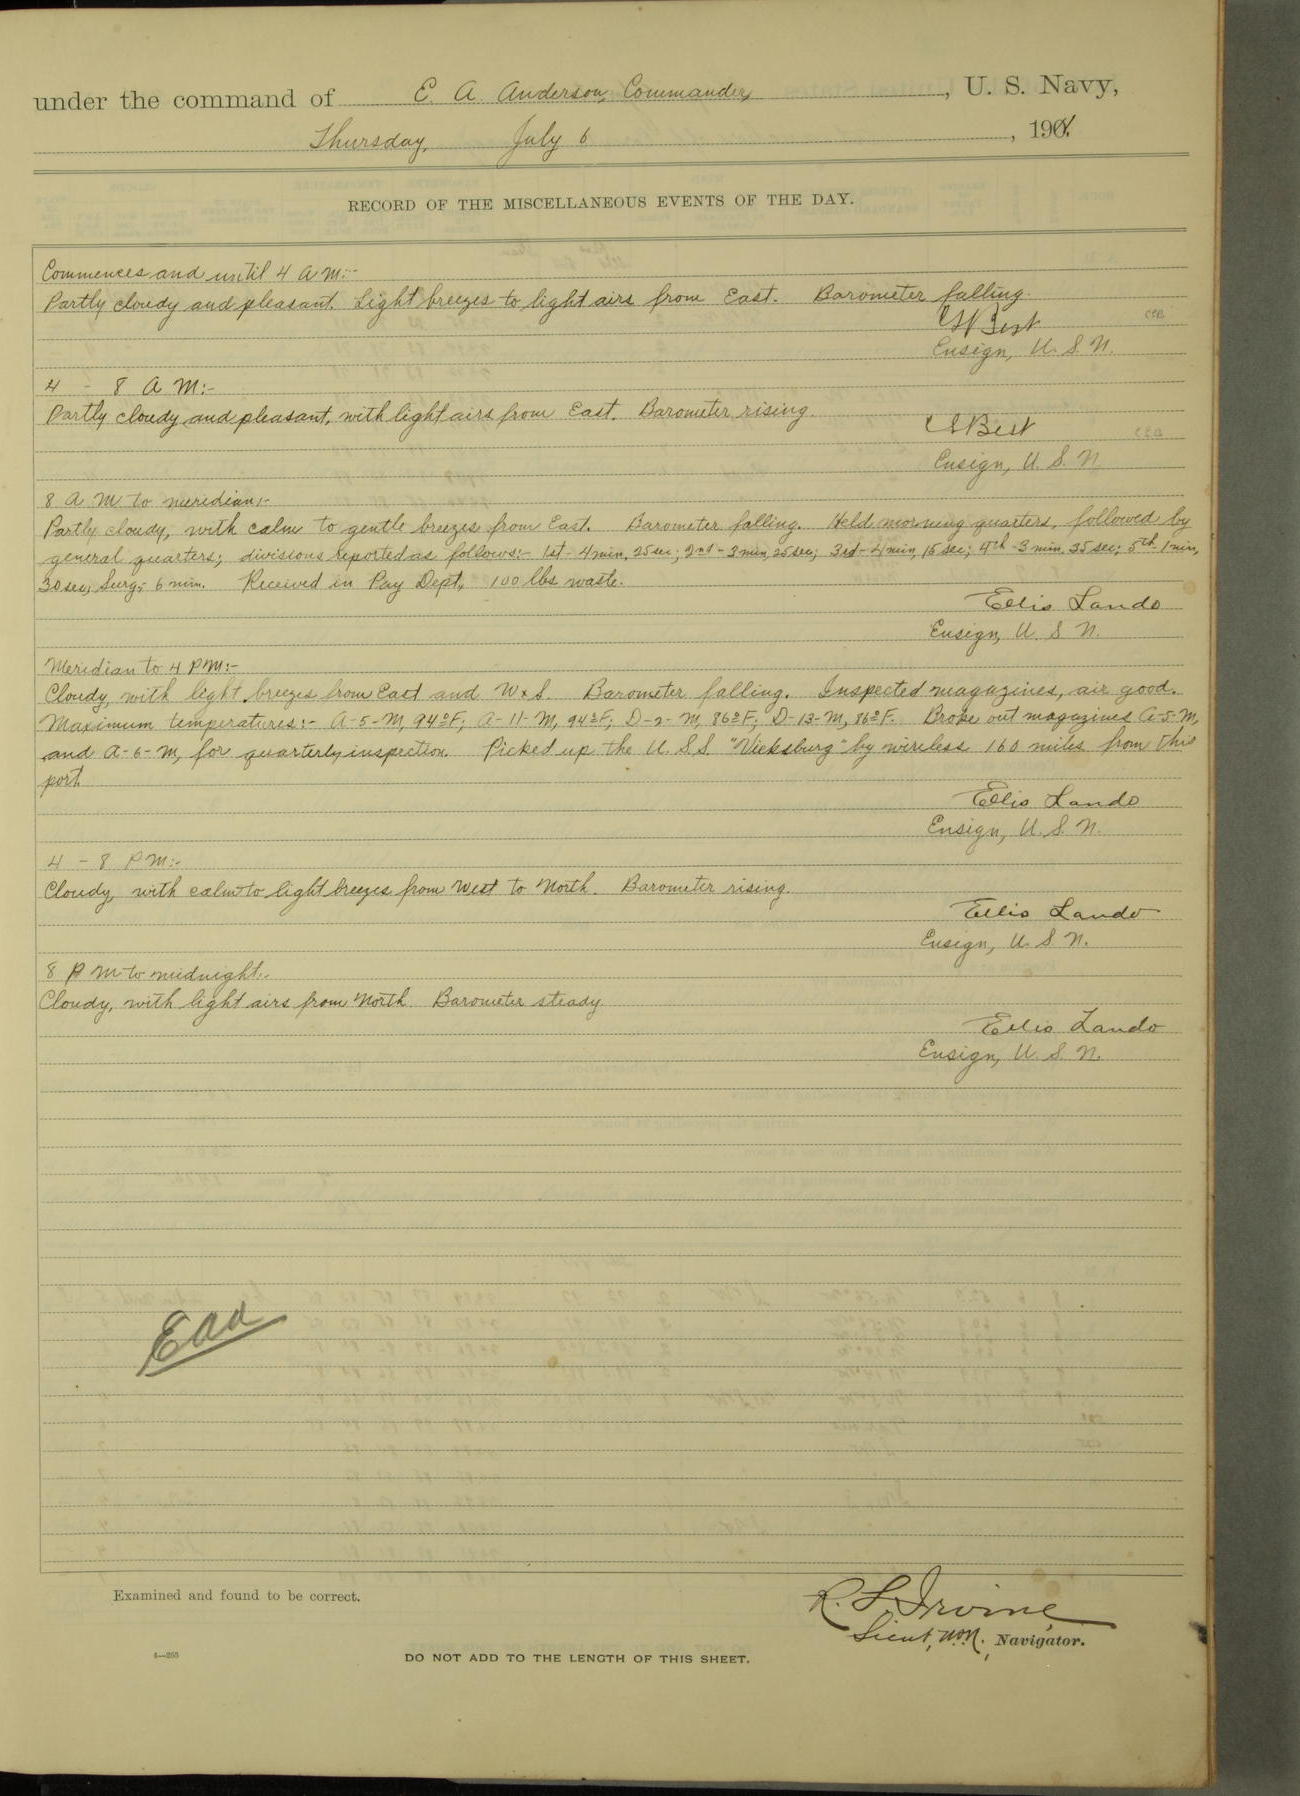 under the command of E. A. Anderson, Commander, U. S. Navy,
Thursday, July 6, 190
RECORD OF THE MISCELLANEOUS EVENTS OF THE DAY.
Commences and until 4 A M:-
Partly cloudy and pleasant. Light breezes to light airs from East. Barometer falling.
CSBest
Ensign, U. S. N.
4 - 8 A M:-
Partly cloudy and pleasant, with light airs from East. Barometer rising
CSBest
Ensign, U. S. N
8 A M to meridian:-
Partly cloudy, with calm to gentle breezes from East. Barometer falling. Held morning quarters, followed by
general quarters; divisions reported as follows:- 1st - 4 min, 25 sec; 2nd - 3 min, 25 sec; 3rd - 4 min, 15 sec; 4th - 3 min. 35 sec; 5th - 1 min,
30 sec; Surg:- 6 min. Received in Pay Dept., 100 lbs waste.
Ellis Lando
Ensign, U. S. N.
Meridian to 4 P M:-
Cloudy, with light breezes from East and W x S. Barometer falling. Inspected magazines, air good.
Maximum temperatures:- A-5-M, 94°F; A-11-M, 94°F; D-2-M, 86°F; D-13-M, 86°F. Broke out magazines A-5-M,
and A-6-M, for quarterly inspection. Picked up the U. S. S. "Vicksburg" by wireless 160 miles from this
port
Ellis Lando
Ensign, U. S. N.
4 - 8 P M:-
Cloudy, with calm to light breezes from West to North. Barometer rising.
Ellis Lando
Ensign, U. S. N.
8 P M to midnight:-
Cloudy, with light airs from North. Barometer steady
Ellis Lando
Ensign, U. S. N.
Eaa
Examined and found to be correct.
R. L. Irvine
Lieut, U.S.N., Navigator.
DO NOT ADD TO THE LENGTH OF THIS SHEET.